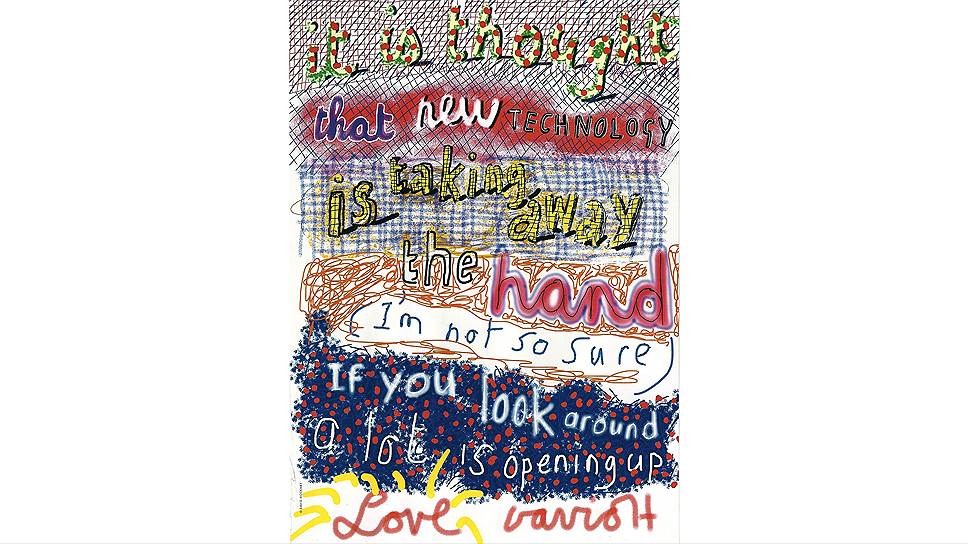 it is thought
that new TECHNOLOGY
is taking away
the hand
(I'm not so sure)
If you look around
a lot is opening up
Love David H